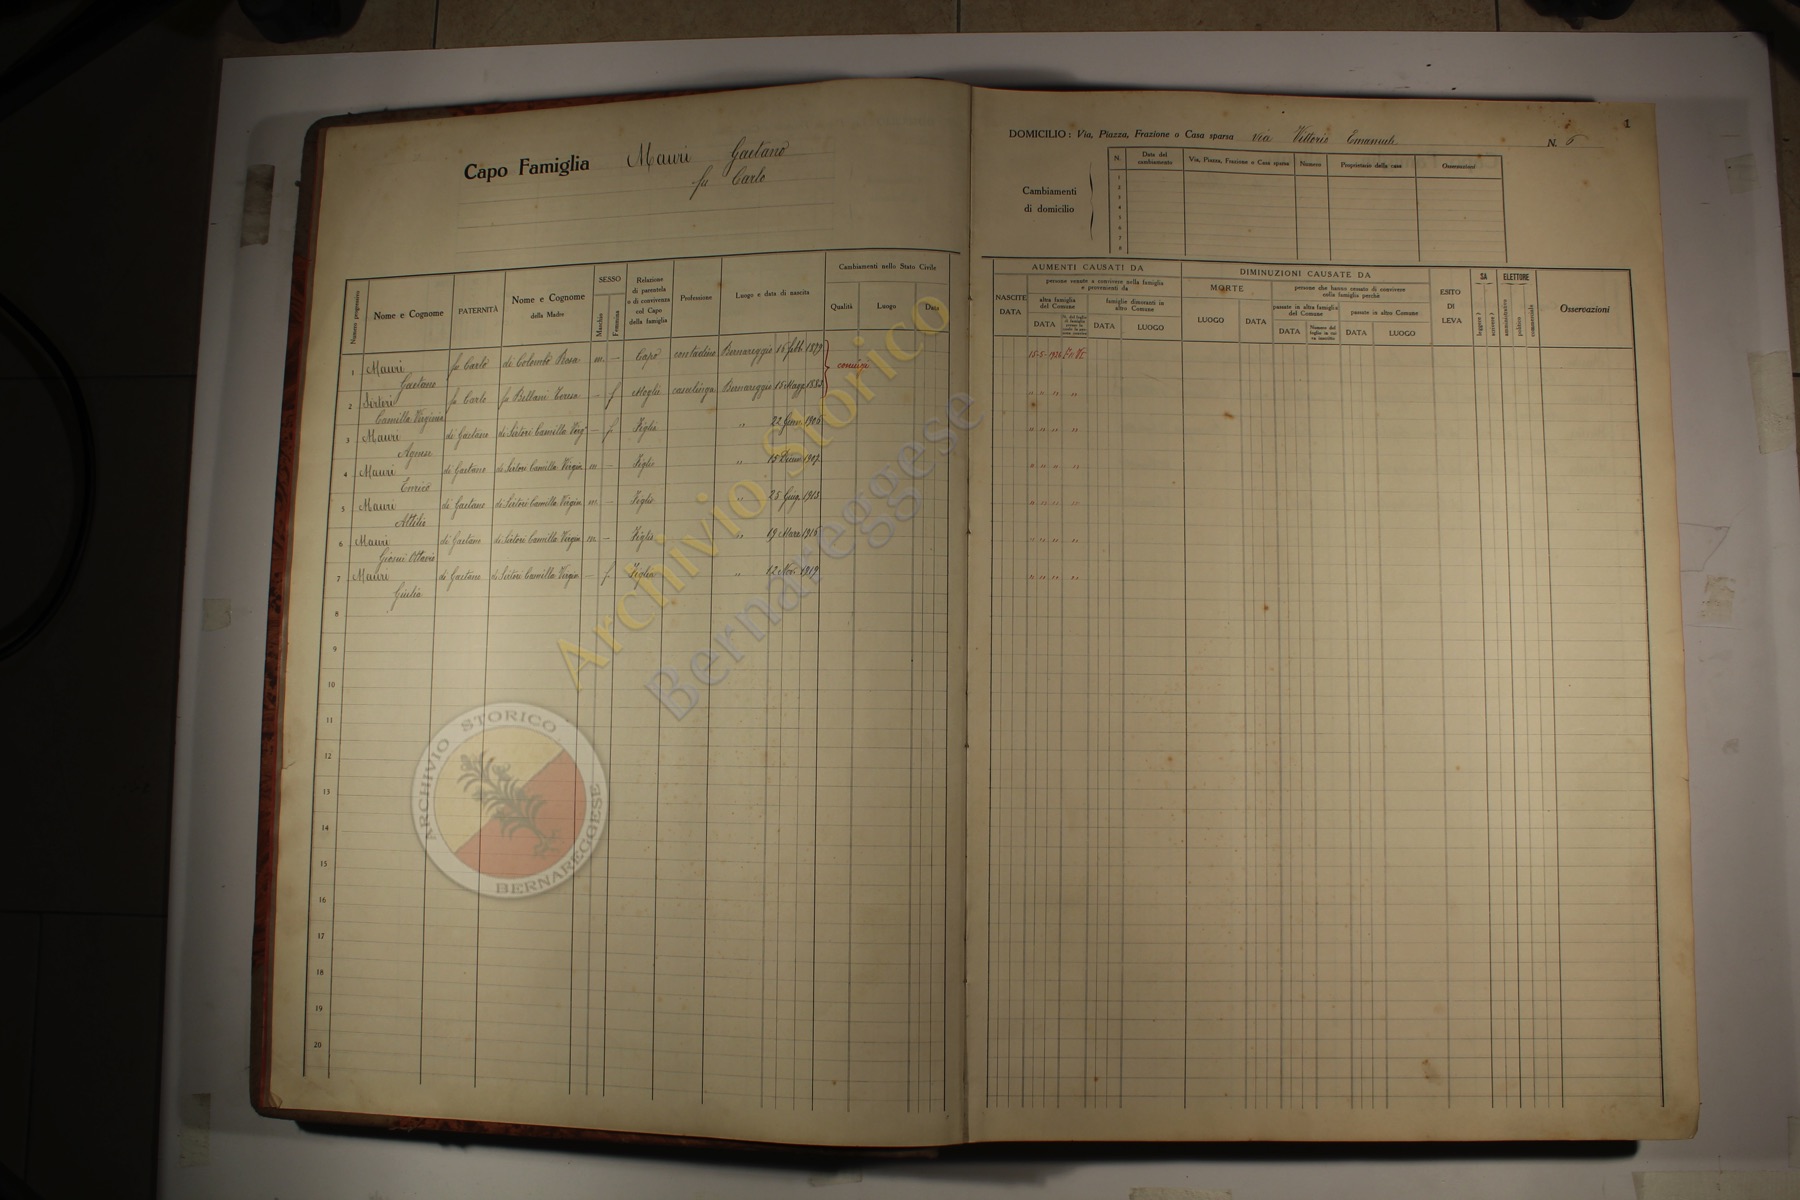 1
Capo Famiglia Mauri Gaetano
fu Carlo
DOMICILIO : Via, Piazza, Frazione o Casa sparsa via Vittorio Emanuele N. 6
Cambiamenti
di domicilio
N. Data del cambiamento Via, Piazza, Frazione o Casa sparsa Numero Proprietario della casa Osservazioni
1
2
3
4
5
6
7
8
Numero progressivo Nome e Cognome PATERNITÀ Nome e Cognome della Madre SESSO Maschio Femmina Relazione di parentela o di convivenza col Capo della famiglia Professione Luogo e data di nascita Cambiamenti nello Stato Civile Qualità Luogo Data
AUMENTI CAUSATI DA
NASCITE DATA
persone venute a convivere nella famiglia e provenienti da
altra famiglia del Comune
DATA
famiglie dimoranti in altro Comune
DATA LUOGO
DIMINUZIONI CAUSATE DA
MORTE
LUOGO DATA
persone che hanno cessato di convivere colla famiglia perchè
passate in altra famiglia del Comune
DATA
passate in altro Comune
DATA LUOGO
ESITO DI LEVA
SA
leggere ?
scrivere ?
ELETTORE
amministrativo
politico
commerciale
Osservazioni
1 Mauri Gaetano fu Carlo di Colombo Rosa m. – Capo contadino Bernareggio 16 febb 1879 coniugi 15-5-1936
2 Sirtori Camilla Virginia fu Carlo fu Bellani Teresa – f Moglie casalinga Bernareggio 15 Magg 1883 " " " "
3 Mauri Agnese di Gaetano di Sirtori Camilla Virg – f. Figlia " 22 Genn. 1906 " " " "
4 Mauri Enrico di Gaetano di Sirtori Camilla Virgin m – Figlio " 15 Dicem 1907 " " " "
5 Mauri Attilio di Gaetano di Sirtori Camilla Virgin m. – Figlio " 25 Giug. 1913 " " " "
6 Mauri Giosuè Ottavio di Gaetano di Sirtori Camilla Virgin m – Figlio " 19 Marz 1916 " " " "
7 Mauri Giulia di Gaetano di Sirtori Camilla Virgin – f. Figlia " 12 Nov. 1919 " " " "
8
9
10
11
12
13
14
15
16
17
18
19
20
Archivio Storico
Bernareggese
ARCHIVIO STORICO
BERNAREGGESE